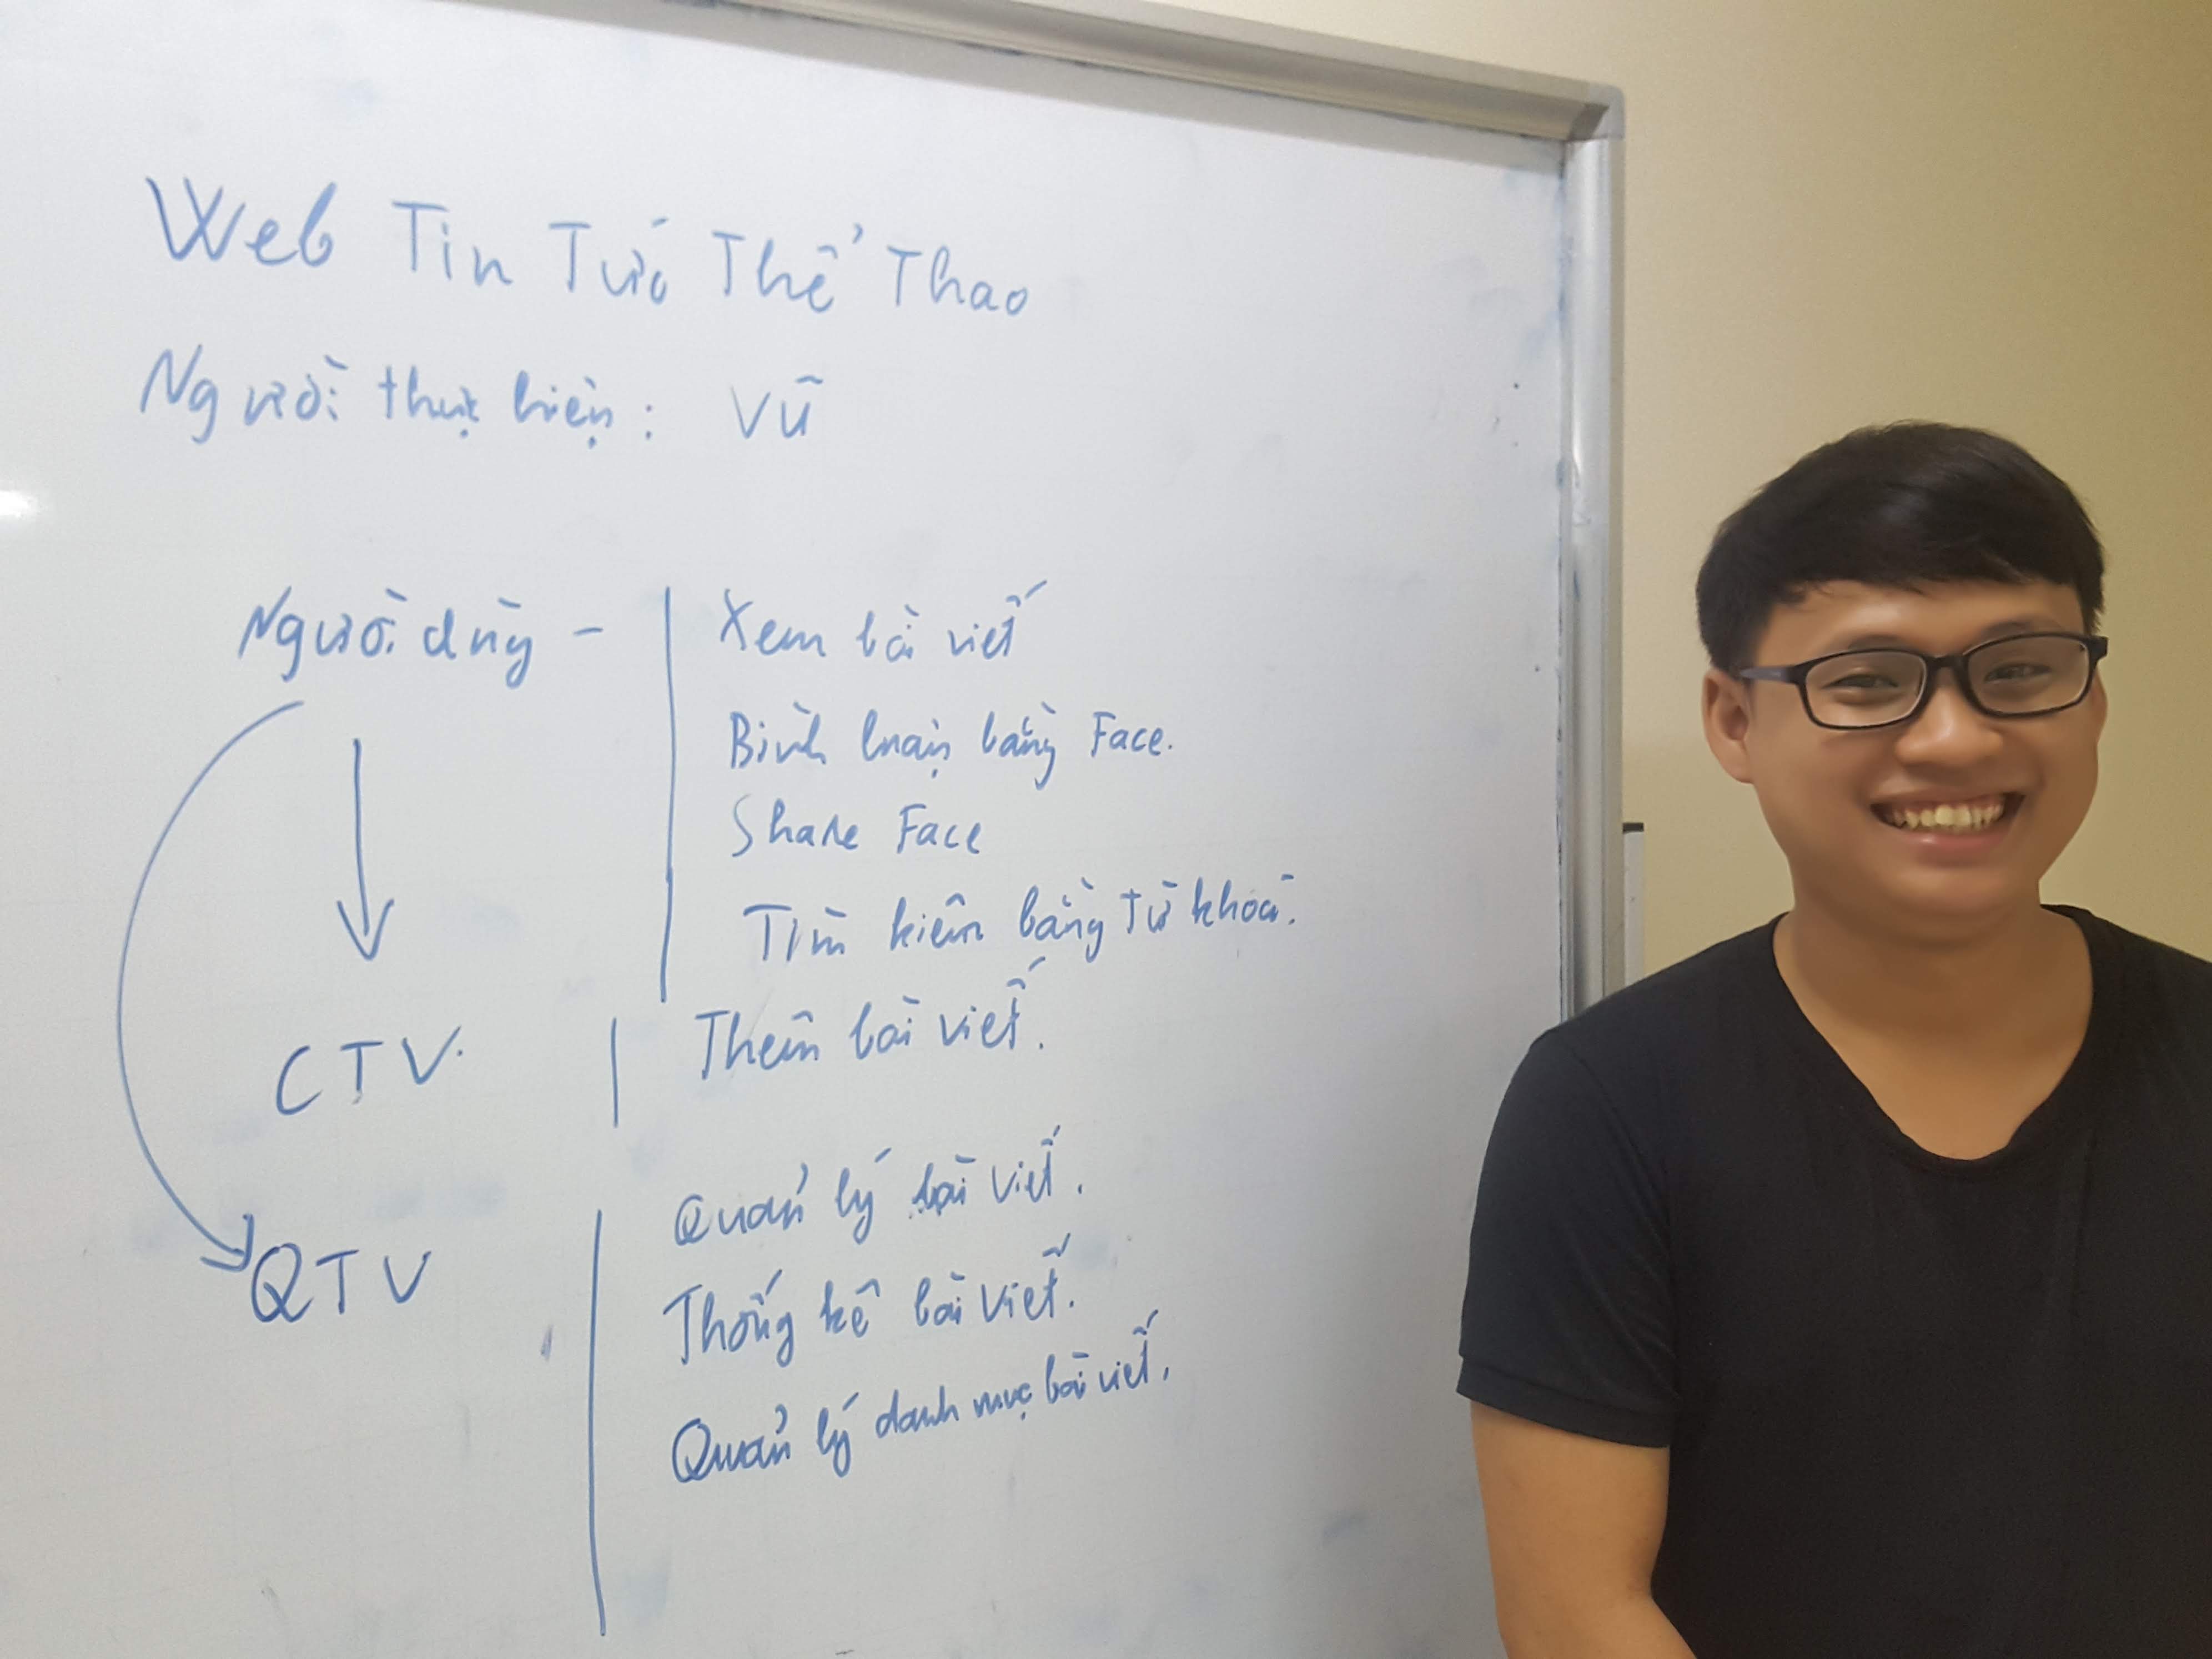 Web Tin Tức Thể Thao
Người thực hiện: Vũ
Người dùng -
Xem bài viết
Bình luận bằng Face.
Share Face
Tìm kiếm bằng từ khóa.
CTV.
Thêm bài viết.
QTV
Quản lý bài viết.
Thống kê bài viết.
Quản lý danh mục bài viết.